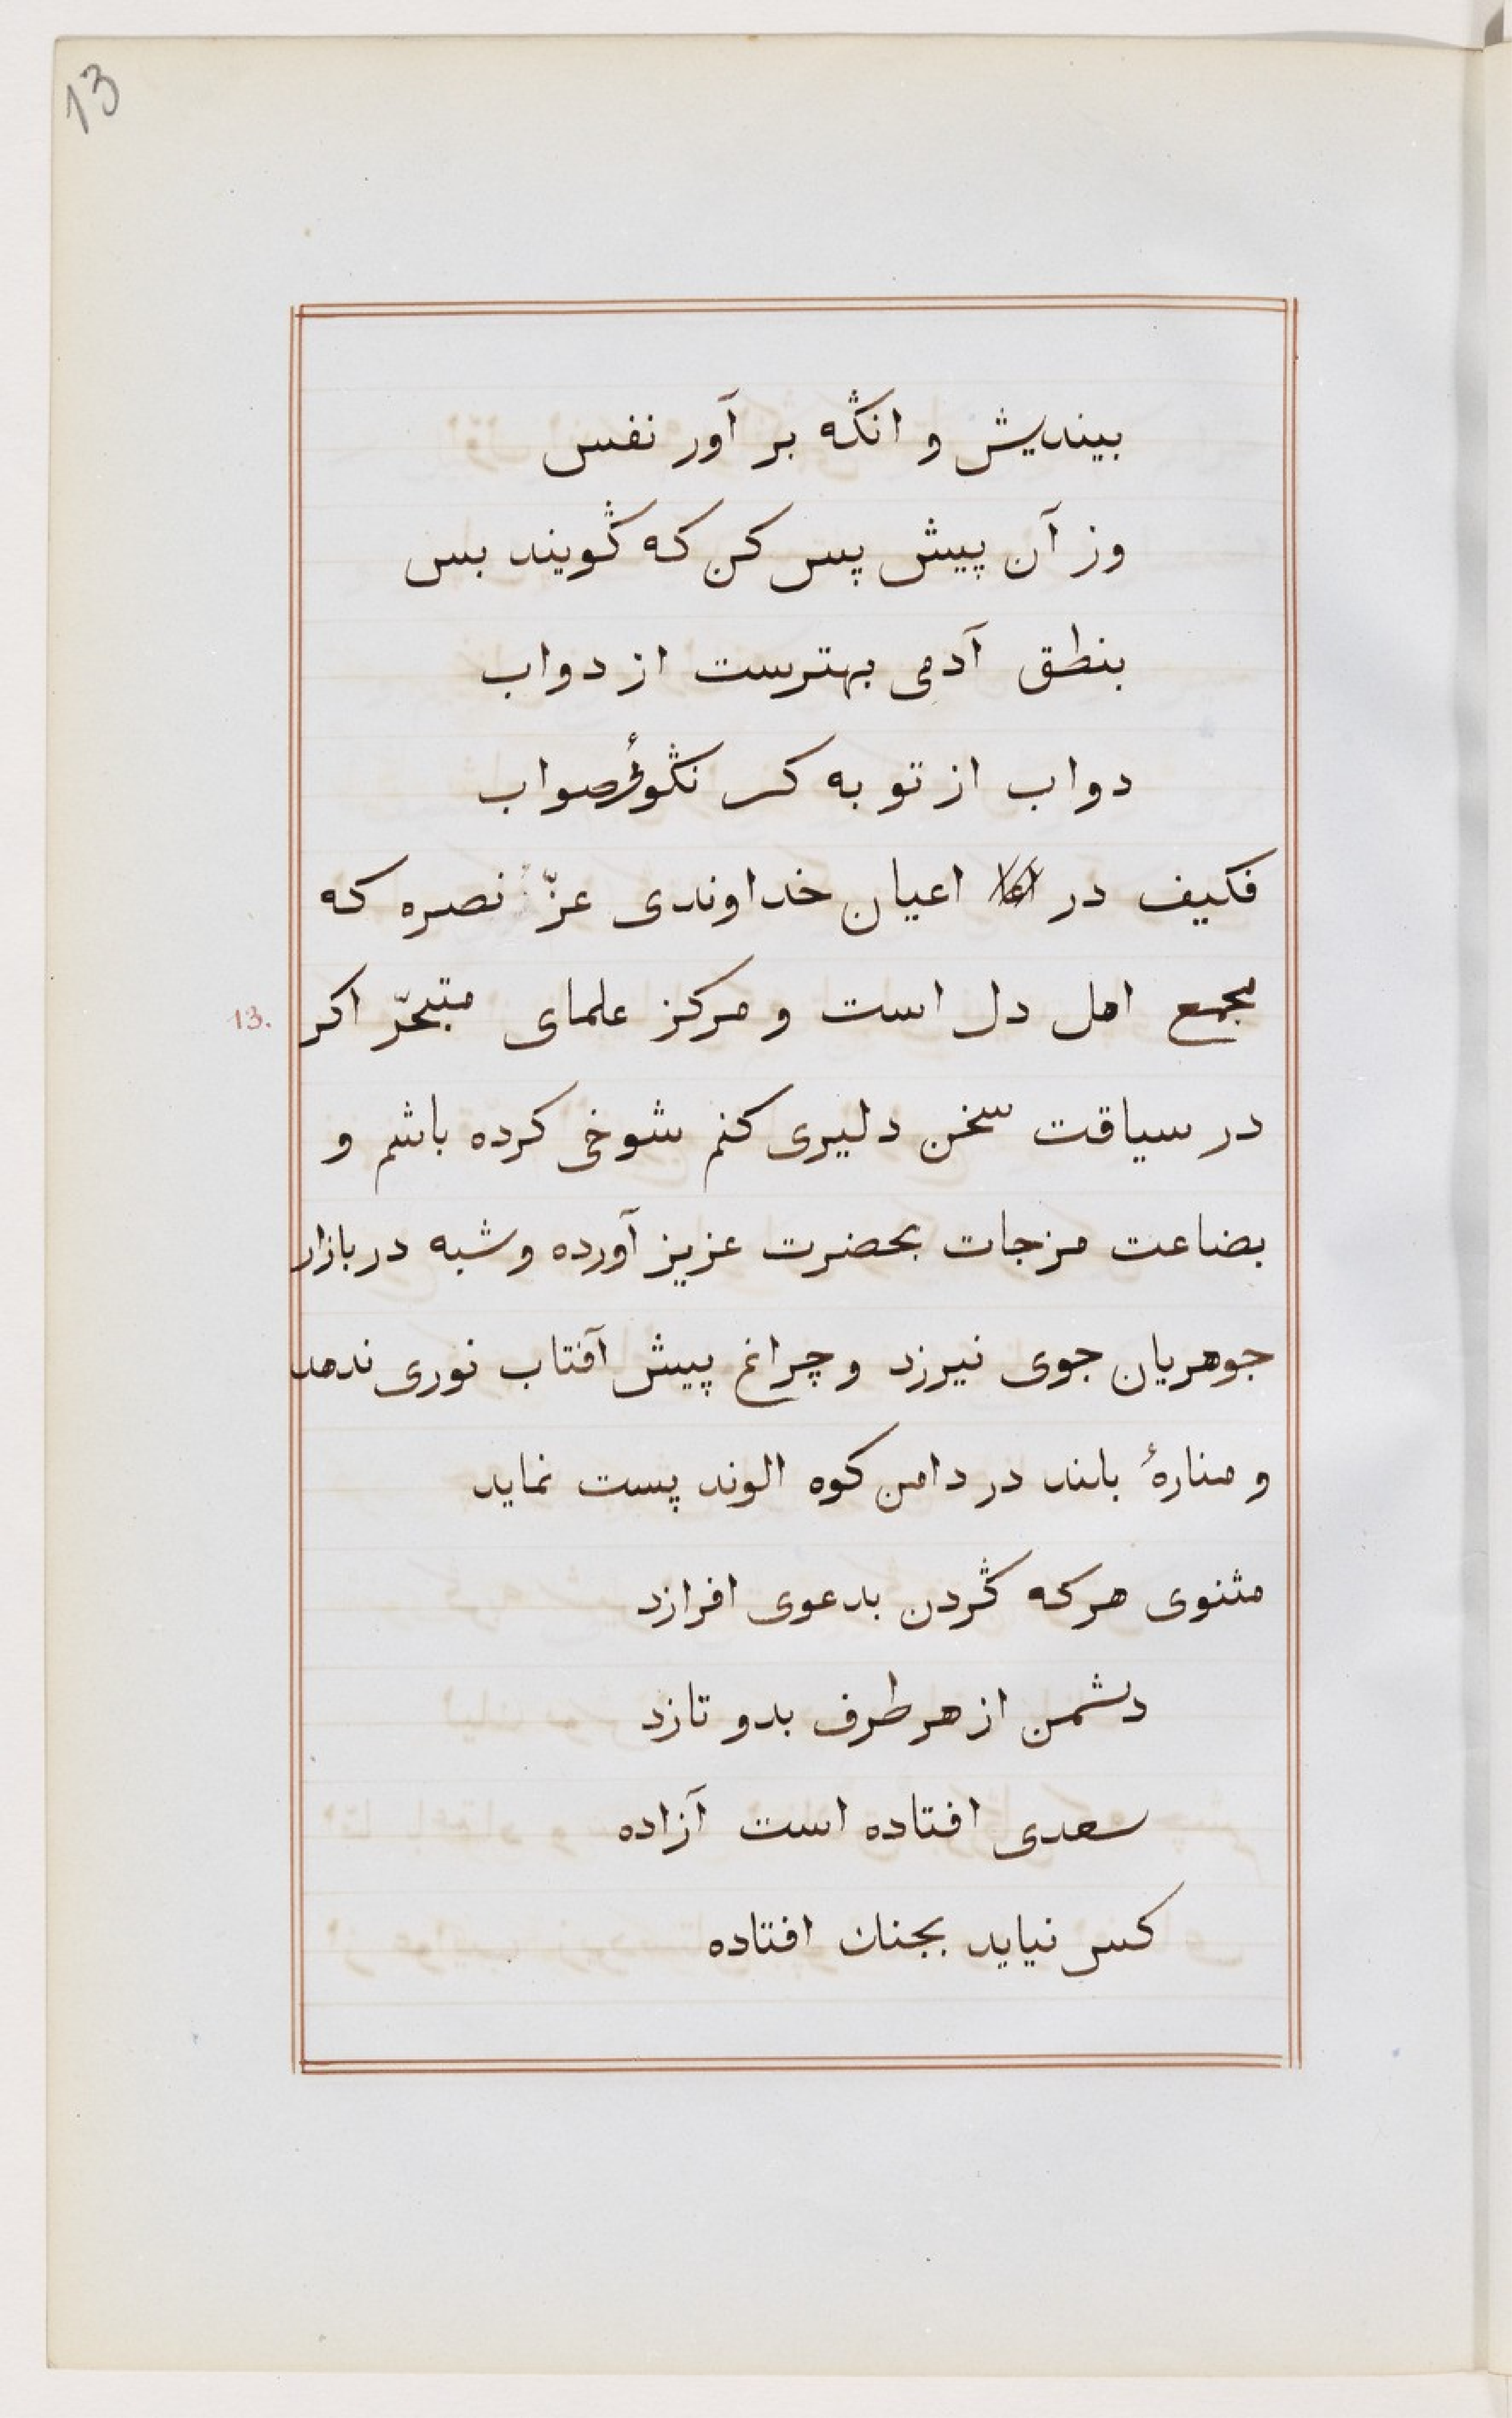 13
بیندیش و انگه بر آور نفس
وز آن پیش پس کن که گویند بس
بنطق آدمی بهترست از دواب
دواب از تو به کر نگوئ صواب
فکیف در اعیان خداوندی عزّ نصره که
مجمع اهل دل است و مرکز علمای متبحّر اکر
13.
در سیاقت سخن دلیری کنم شوخی کرده باشم و
بضاعت مزجات بحضرت عزیز آورده و شبه در بازار
جوهریان جوی نیرزد و چراغ پیش آفتاب نوری ندهد
و منارهٔ بلند در دامن کوه الوند پست نماید
مثنوی هرکه گردن بدعوی افرازد
دشمن از هر طرف بدو تازد
سعدی افتاده است آزاده
کس نیاید بجنك افتاده